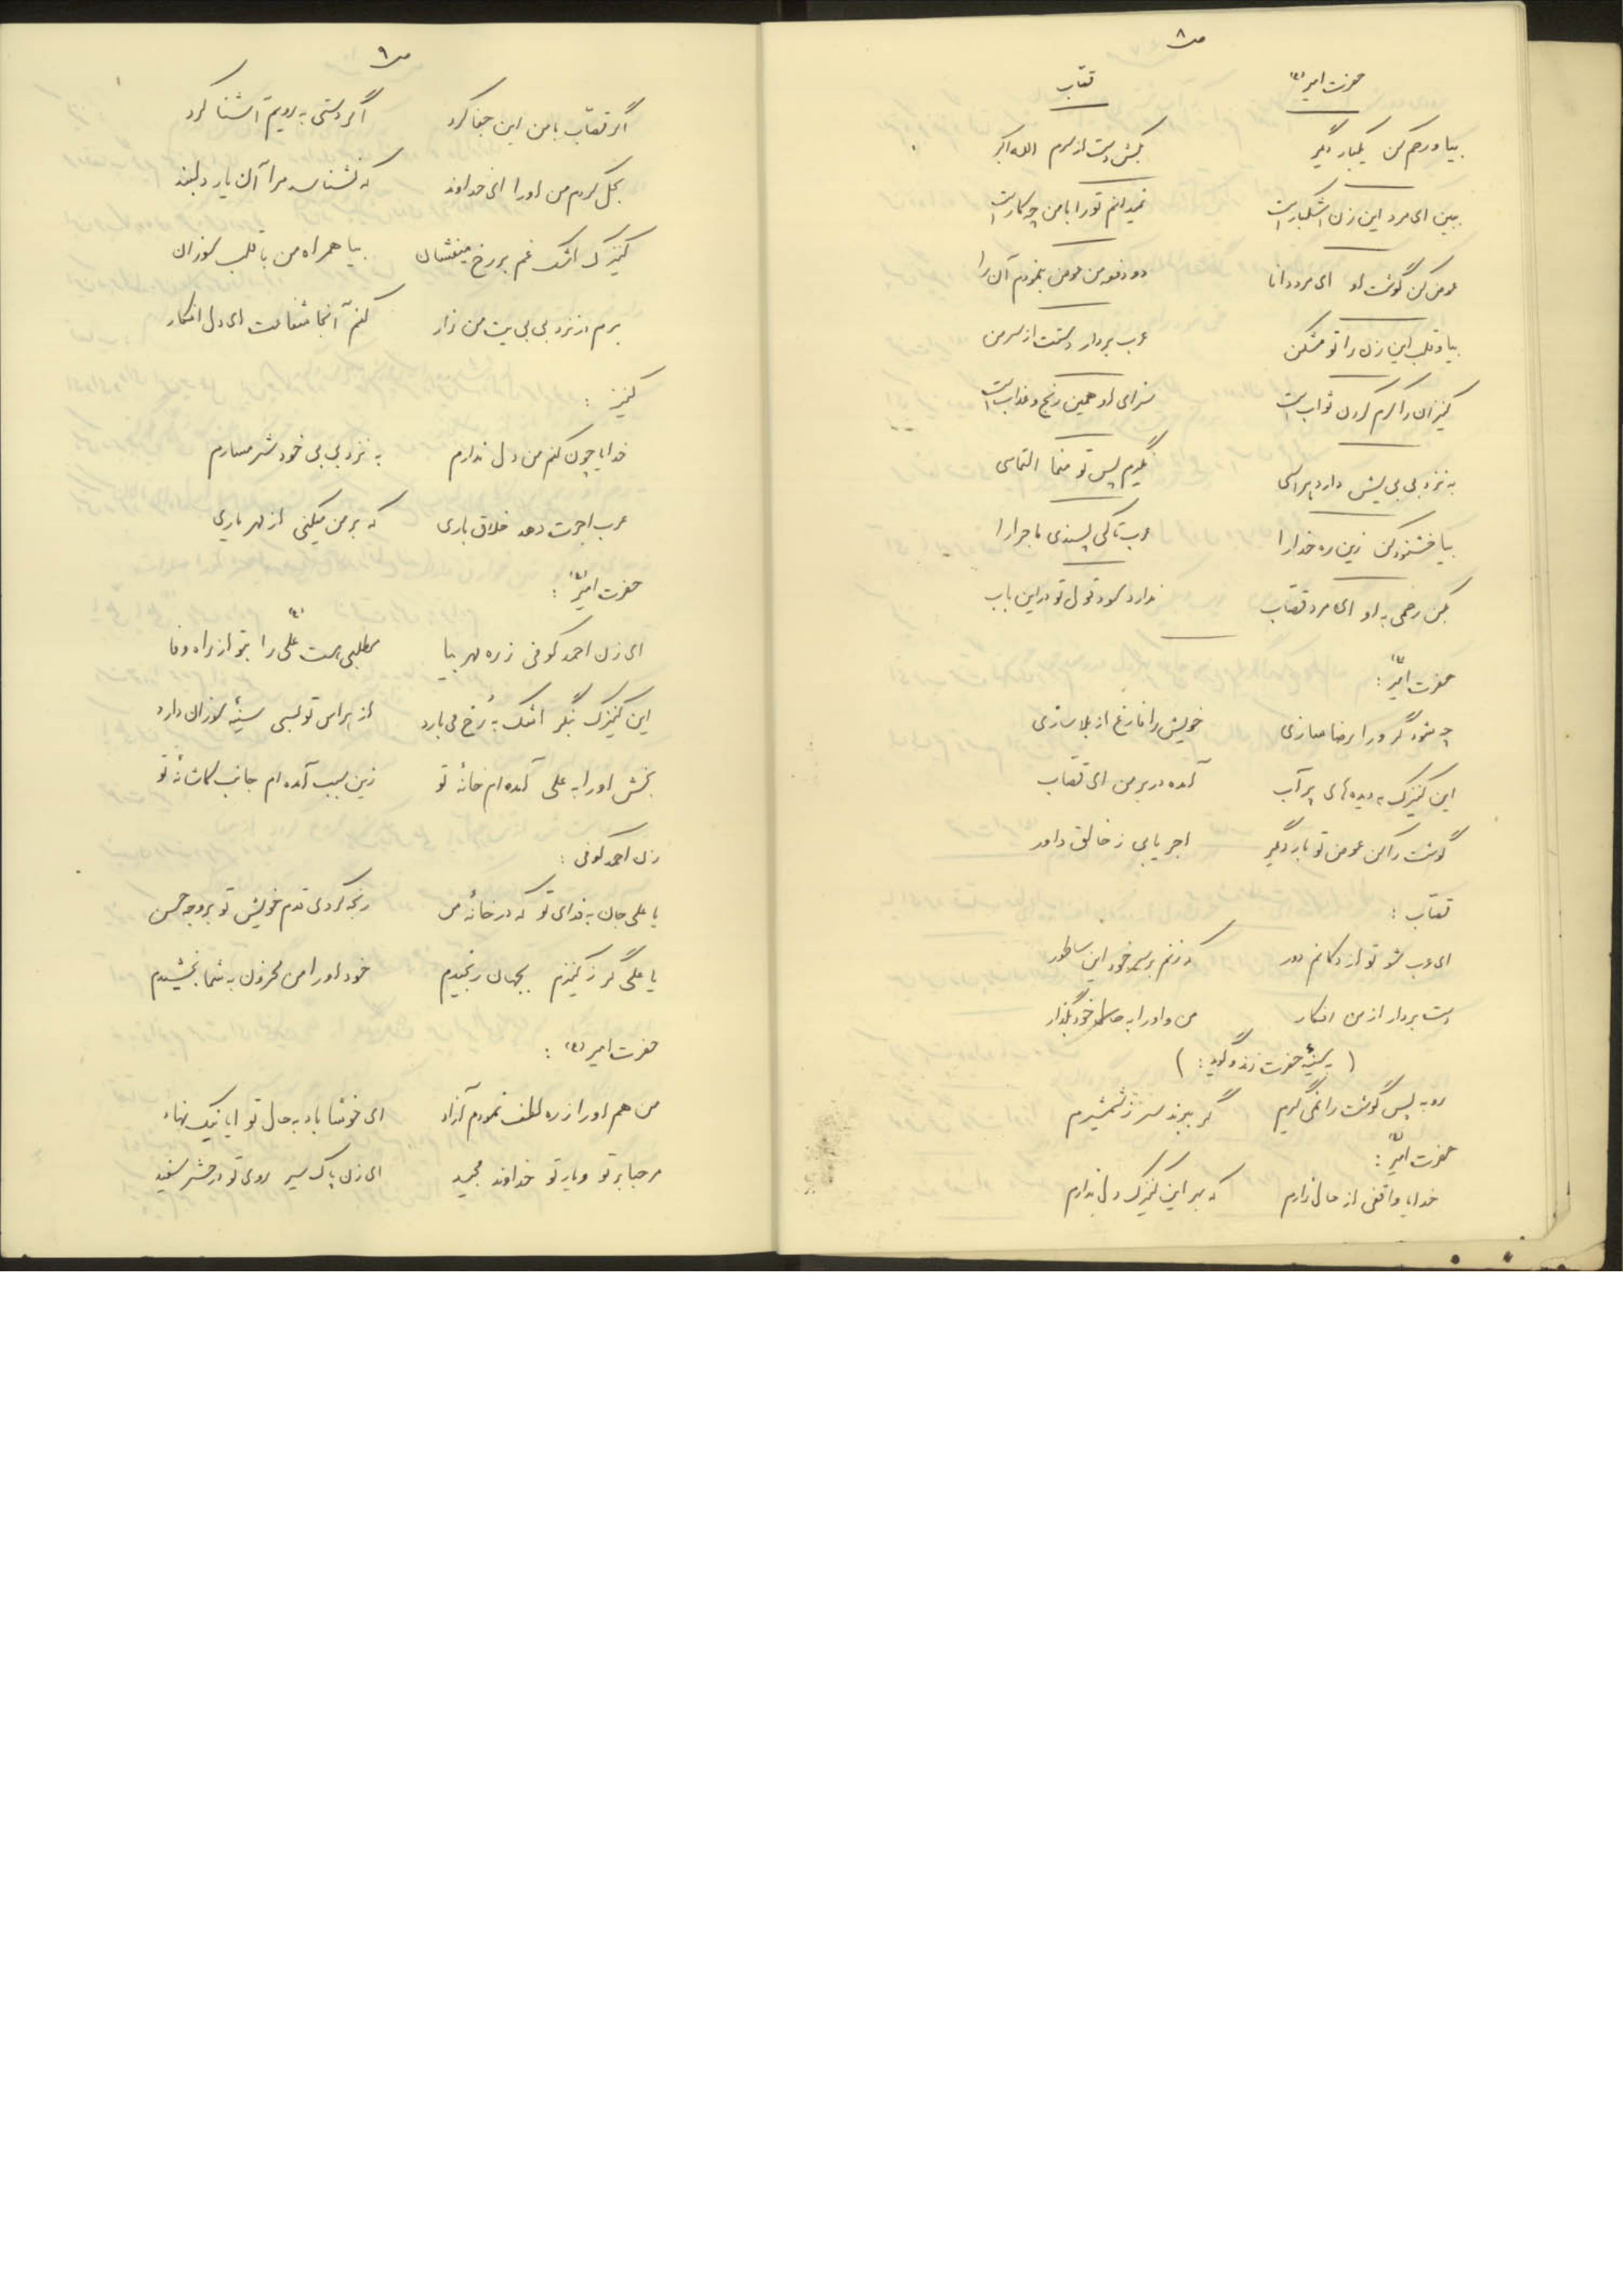 ص ۸
حضرت امیر (ع) قصّاب
بیا و رحم کن یکبار دیگر بکش دست از سرم الله اکبر
ببین ای مرد این زن اشکبار است نمیدانم تو را با من چه کار است
عوض کن گوشت او ای مرد دانا دو دفعه من عوض بنمودم آن را
بیا و قلب این زن را تو مشکن عرب بردار دستت از سر من
کنیزان را کرم کردن ثواب است سزای او همین رنج و عذاب است
به نزد بی بی یش دارد هراسی نگیرم پس تو منما التماسی
بیا خشنود کن زین ره خدا را عرب تا کی پسندی ماجرا را
بکن رحمی به او ای مرد قصّاب ندارد سود قول تو در این باب
حضرت امیر (ع) :
چه شود گر ورا رضا سازی خویش را فارغ از بلا سازی
این کنیزک به دیده‌های پر آب آمده در بر من ای قصّاب
گوشت را کن عوض تو بار دگر اجر یابی ز خالق داور
قصّاب :
ای عرب شو تو از دکانم دور که زنم بر سر خود این ساطور
دست بردار از من افکار من و او را به حال خود بگذار
( به سینهٔ حضرت زند و گوید : )
رو به پس گوشت را نمی گیرم گر ببرند سر ز شمشیرم
حضرت امیر (ع) :
خدایا واقفی از حال زارم که بهر این کنیزک دل ندارم
ص ۹
اگر قصّاب با من این جفا کرد اگر دستی به رویم آشنا کرد
بحل کردم من او را ای خداوند که نشناسد مرا آن یار دلبند
کنیزک اشک غم بر رخ میفشان بیا همراه من با قلب سوزان
برم از نزد بی بی یت من زار کنم آنجا شفاعت ای دل افکار
کنیز :
خدایا چون کنم من دل ندارم به نزد بی بی خود شرمسارم
عرب اجرت دهد خلاق باری که بر من میکنی از مهر یاری
حضرت امیر (ع) :
ای زن احمد کوفی ز ره مهر بیا مطلبی هست علی (ع) را بتو از راه وفا
این کنیزک بنگر اشک به رخ می بارد از هراس تو بسی سینهٔ سوزان دارد
بخش او را به علی آمده ام خانهٔ تو زین سبب آمده ام جانب کاشانهٔ تو
زن احمد کوفی :
یا علی جان به فدای تو که در خانهٔ من رنجه کردی قدم خویش تو بر وجه حسن
یا علی گر ز کنیزم بجهان رنجیدم خود او را من محزون به شما بخشیدم
حضرت امیر (ع) :
من هم او را ز ره لطف نمودم آزاد ای خوشا باد به حال تو ایا نیک نهاد
مرحبا بر تو و یار تو خداوند مجید ای زن پاک سیر روی تو در حشر سفید